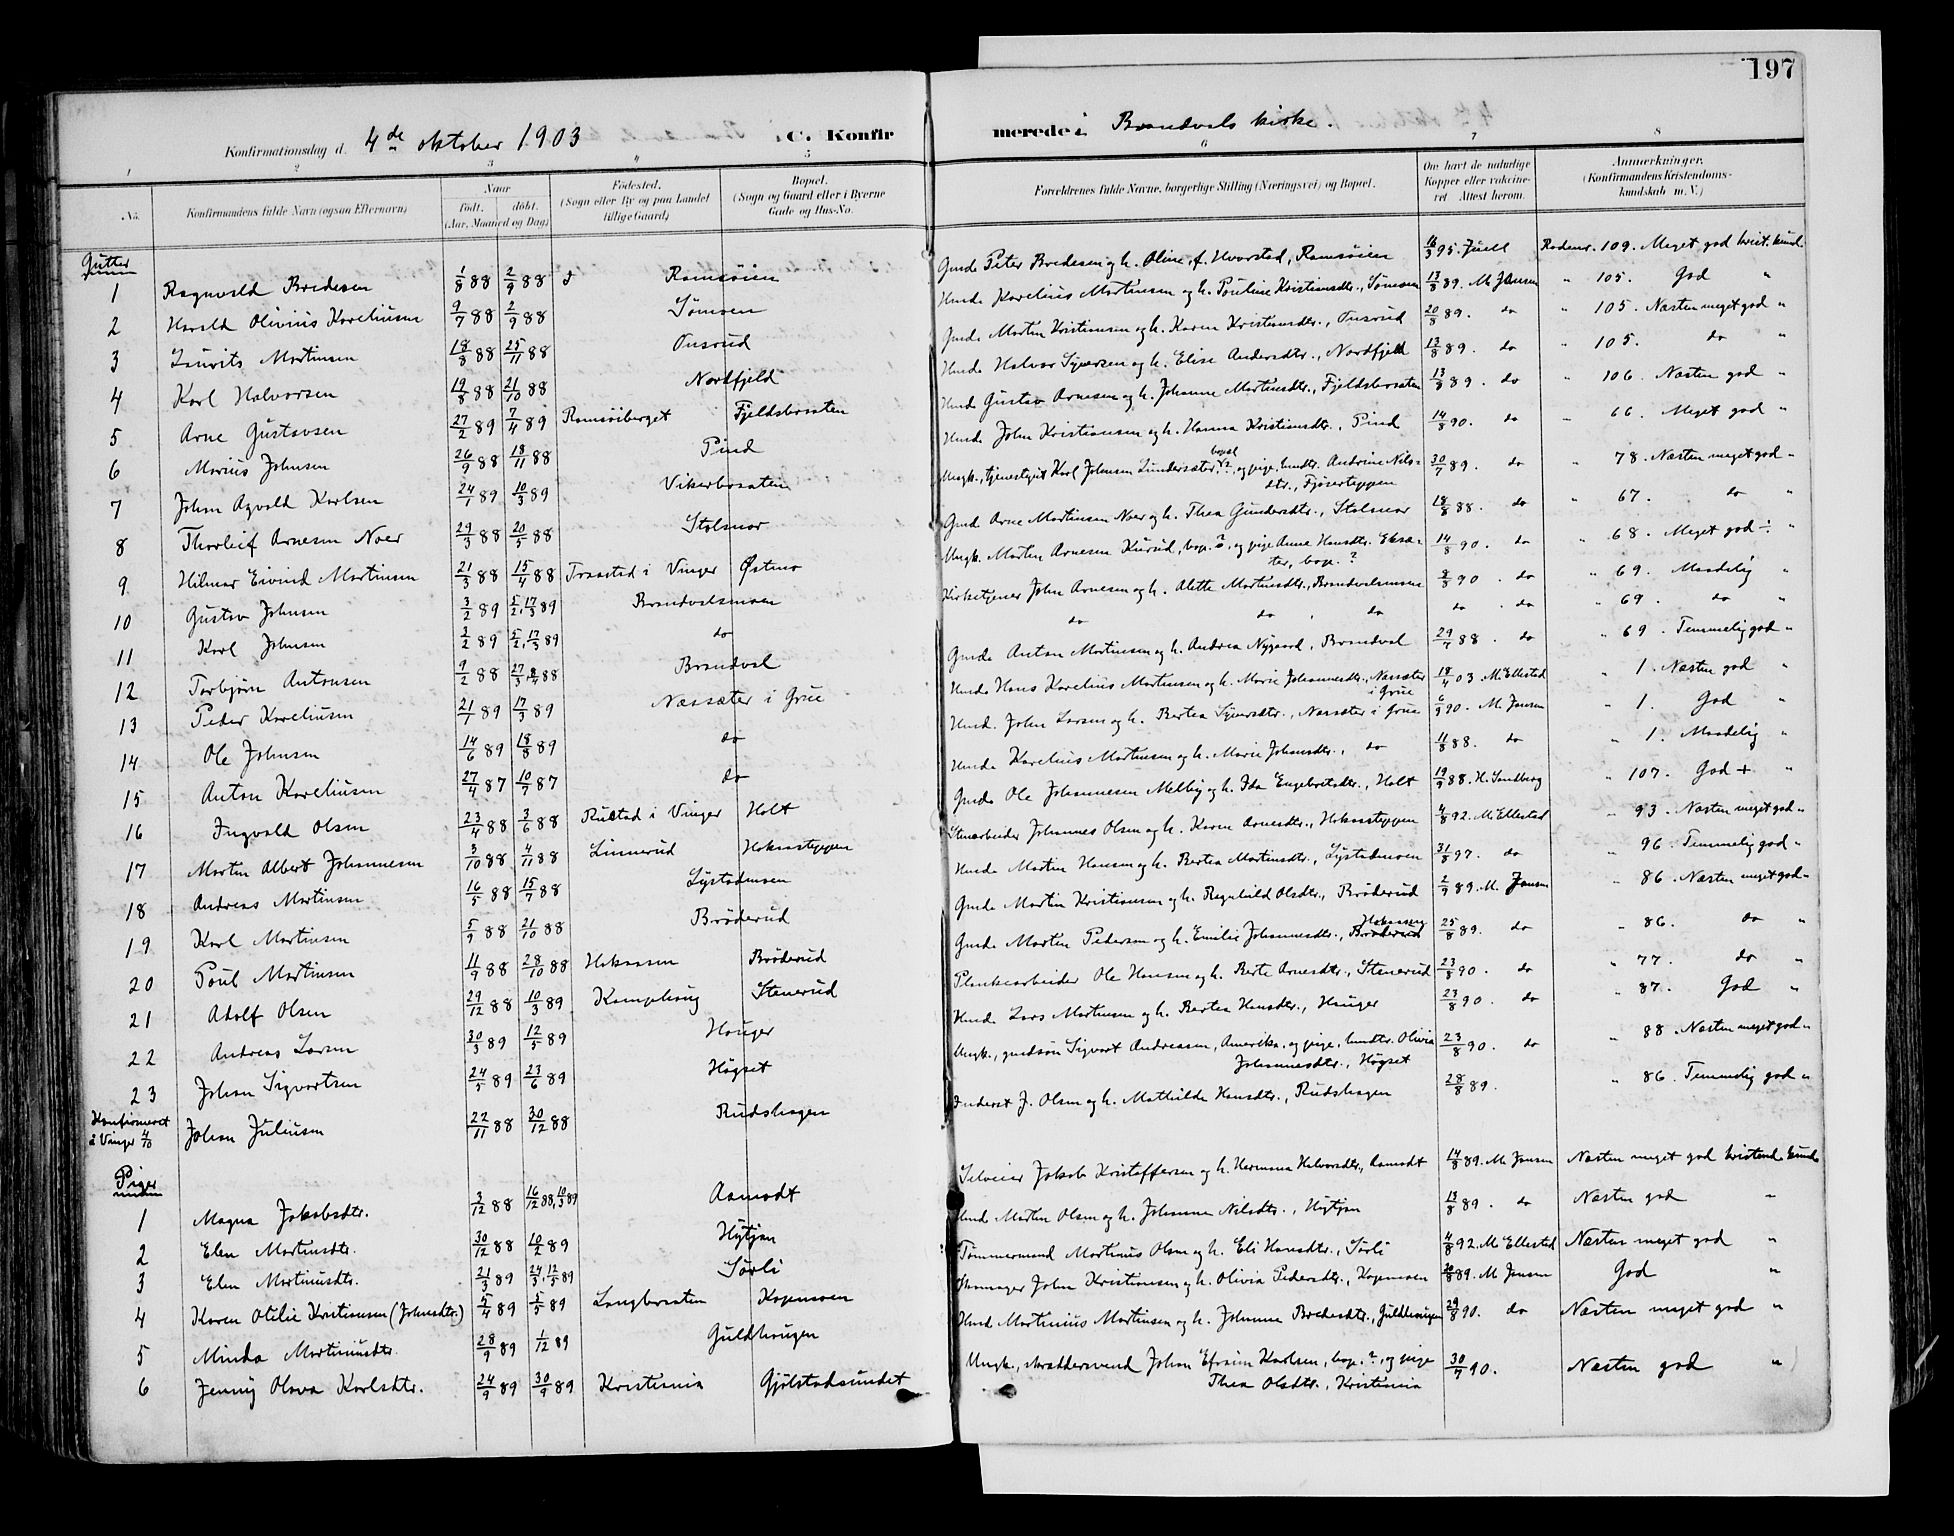 197
Konfirmationsdag d. 4de oktober 1903 C. Konfirmerede i Brandvals kirke.
1 2 3 4 5 6 7 8
No. Konfirmandens fulde Navn (ogsaa Efternavn) Naar født. døbt. (Aar, Maaned og Dag) Fødested. (Sogn eller By og paa Landet tillige Gaard) Bopæl. (Sogn og Gaard eller i Byerne Gade og Hus-No. Forældrenes fulde Navne, borgerlige Stilling (Næringsvei) og Bopæl. Om havt de naturlige Kopper eller vaccineret Attest herom. Anmerkninger. (Konfirmandens Kristendomskundskab m. V.)
Gutter
1 Ragnvald Bredesen 1/8 88 2/9 88 Ramsøien Gmd. Peter Bredesen og h. Oline, f. Hvorstad, Ramsøien 16/3 95. Juell Rodenr. 109. Meget god krist. kund.
2 Harald Olivius Kareliusen 9/7 88 2/9 88 Tømoen Hmd. Karelius Martinsen og h. Pauline Kristiansdtr., Tømoen 13/8 89. M. Jensen " 105. God "
3 Laurits Martinsen 18/8 88 25/11 88 Onsrud Gmd. Martin Kristiansen og h. Karen Kristiansdtr., Onsrud 20/8 89. do " 105. Næsten meget god "
4 Karl Halvorsen 19/8 88 21/10 88 Nordfjeld Hmd. Halvor Syversen og h. Elise Andersdtr., Nordfjeld 13/8 89. do " 105. do "
5 Arne Gustavsen 27/2 89 7/4 89 Ramsøiberget Fjeldsbraaten Hmd. Gustav Arnesen og h. Johanne Martinsdtr., Fjeldsbraaten 13/8 89. do " 106. Næsten god "
6 Marius Johnsen 26/9 88 18/11 88 Pind Hmd. John Kristiansen og h. Hanna Kristiansdtr., Pind 14/8 90. do " 66. Meget god "
7 Johan Agvald Karlsen 24/1 89 10/3 89 Vikerbraaten Ungk., tjenestegut Karl Johansen Lundersæter, bopæl ?, og pige, hmdtr. Andrine Nilsdtr., Fjøserteppen 30/7 89. do " 78. Næsten meget god "
8 Thorleif Arnesen Noer 29/3 88 20/5 88 Stolsmar Gmd. Arne Martinsen Noer og h. Thea Gundersdtr., Stolsmar 18/8 88. do " 67. do "
9 Hilmar Eivind Martinsen 21/3 88 15/4 88 Traastad i Vinger Østmo Ungk. Martin Arnesen Kurud, bop. ?, og pige Anne Hansdtr. Eksæter, bop. ? 14/8 90. do " 68. Meget god ÷ "
10 Gustav Johnsen 3/2 89 5/2, 17/3 89 Brandvalsmoen Kirketjener John Arnesen og h. Alette Martinsdtr., Brandvalsmoen 8/8 90. do " 69. Maadelig "
11 Karl Johnsen 3/2 89 5/2, 17/3 89 do do do do do . do " 69. do "
12 Torbjørn Antonsen 9/2 88 27/3, 8/4 88 Brandval Gmd. Anton Martinsen og h. Andrea Nygaard, Brandval 29/7 88. do " 69. Temmelig god "
13 Peder Kareliusen 21/1 89 17/3 89 Næssæter i Grue Hmd. Hans Karelius Martinsen og h. Marie Johannesdtr., Næssæter i Grue 18/4 03. M. Ellestad " 1. Næsten god "
14 Ole Johnsen 14/6 89 18/8 89 do Hmd. John Larsen og h. Bertea Syversdtr., Næssæter i Grue 6/9 90. M. Jensen " 1. God "
15 Anton Kareliusen 27/4 87 10/7 87 do Hmd. Karelius Martinsen og h. Marie Johansdtr., do 11/8 88. do " 1. Maadelig "
16 Ingvald Olsen 23/4 88 3/6 88 Rustad i Vinger Holt Gmd. Ole Johannesen Melby og h. Ida Engebretsdtr., Holt 19/9 88. H. Sandberg " 107. God + "
17 Martin Albert Johannesen 3/10 88 4/11 88 Linnerud Hokaasteppen Stenarbeider Johannes Olsen og h. Karen Arnesdtr., Hokaasteppen 4/8 92. M. Ellestad " 93. Næsten meget god "
18 Andreas Martinsen 16/5 88 15/7 88 Lystadmoen Hmd. Martin Hansen og h. Bertea Martinsdtr., Lystadmoen 31/8 97. do " 96. Temmelig god "
19 Karl Martinsen 5/9 88 21/10 88 Brøderud Gmd. Martin Kristiansen og h. Ragnhild Olsdtr., Brøderud 2/9 89. M. Jensen " 86. Næsten meget god "
20 Paul Martinsen 11/9 88 28/10 88 Hokaasen Brøderud Gmd. Martin Pedersen og h. Emilie Johannesdtr., Hokaasen 25/8 89. do " 86. do "
21 Adolf Olsen 29/12 88 10/3 89 Kampehaug Stenerud Plankearbeider Ole Hansen og h. Berte Arnesdtr., Stenerud 23/8 90. do " 77. do "
22 Andreas Larsen 30/3 89 12/5 89 Hauger Hmd. Lars Martinsen og h. Bertea Hansdtr., Hauger 23/8 90. do " 87. God "
23 Johan Sigvartsen 24/5 89 23/6 89 Høgset Ungk., gmdsøn Sigvart Andreassen, Amerika, og pige, hmdtr. Olivia Johannesdtr., Høgset 23/8 90. do " 88. Næsten meget god "
Konfirmeret i Vinger 4/10 Johan Juliusen 22/11 88 30/12 88 Rudshagen Inderst J. Olsen og h. Mathilde Hansdtr., Rudshagen 28/8 89. " 86. Temmelig god "
Piger
1 Magna Jakobsdtr. 3/12 88 16/12 88, 10/3 89 Aamodt Selveier Jakob Kristoffersen og h. Hermana Halvorsdtr., Aamodt 14/8 89. M. Jensen Næsten meget god kristend. kund.
2 Elen Martinsdtr. 30/12 88 10/2 89 Hytjen Hmd. Martin Olsen og h. Johanne Nilsdtr., Hytjen 13/8 89. do Næsten god "
3 Elen Martinusdtr. 21/3 89 24/3, 12/5 89 Sørli Tømmermand Martinus Olsen og h. Eli Hansdtr., Sørli 4/8 92. M. Ellestad Næsten meget god "
4 Karen Otilie Kristiansen (Johnsdtr.) 5/4 89 5/5 89 Langbraaten Kopmoen Skomager John Kristiansen og h. Olivia Pedersdtr., Kopmoen 20/8 89. M. Jensen God "
5 Minda Martiniusdtr. 28/9 89 1/12 89 Guldhaugen Hmd. Martinius Martinsen og h. Johanne Bredesdtr., Guldhaugen 29/8 90. do Næsten meget god "
6 Jenny Olava Karlsdtr. 24/9 89 30/9 89 Kristiania Gjølstadsundet Ungk., skræddersvend Johan Efraim Karlsen, bop. ?, og pige Thea Olsdtr., Kristiania 30/7 90. Næsten god "